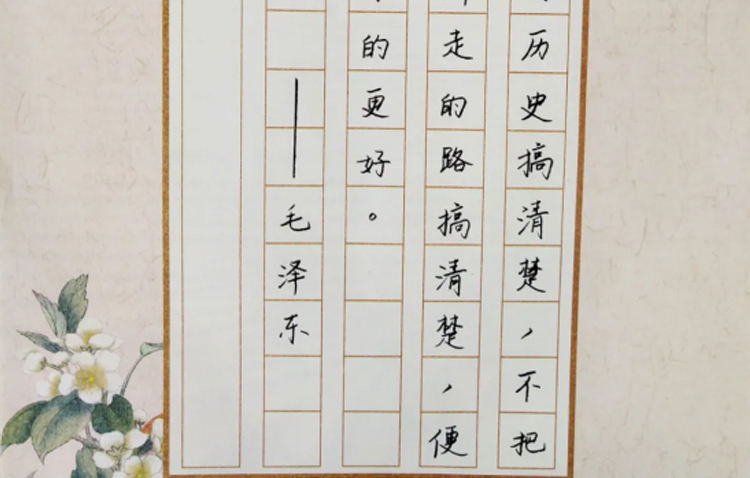 历史搞清楚，不把
走的路搞清楚，便
的更好。
——毛泽东